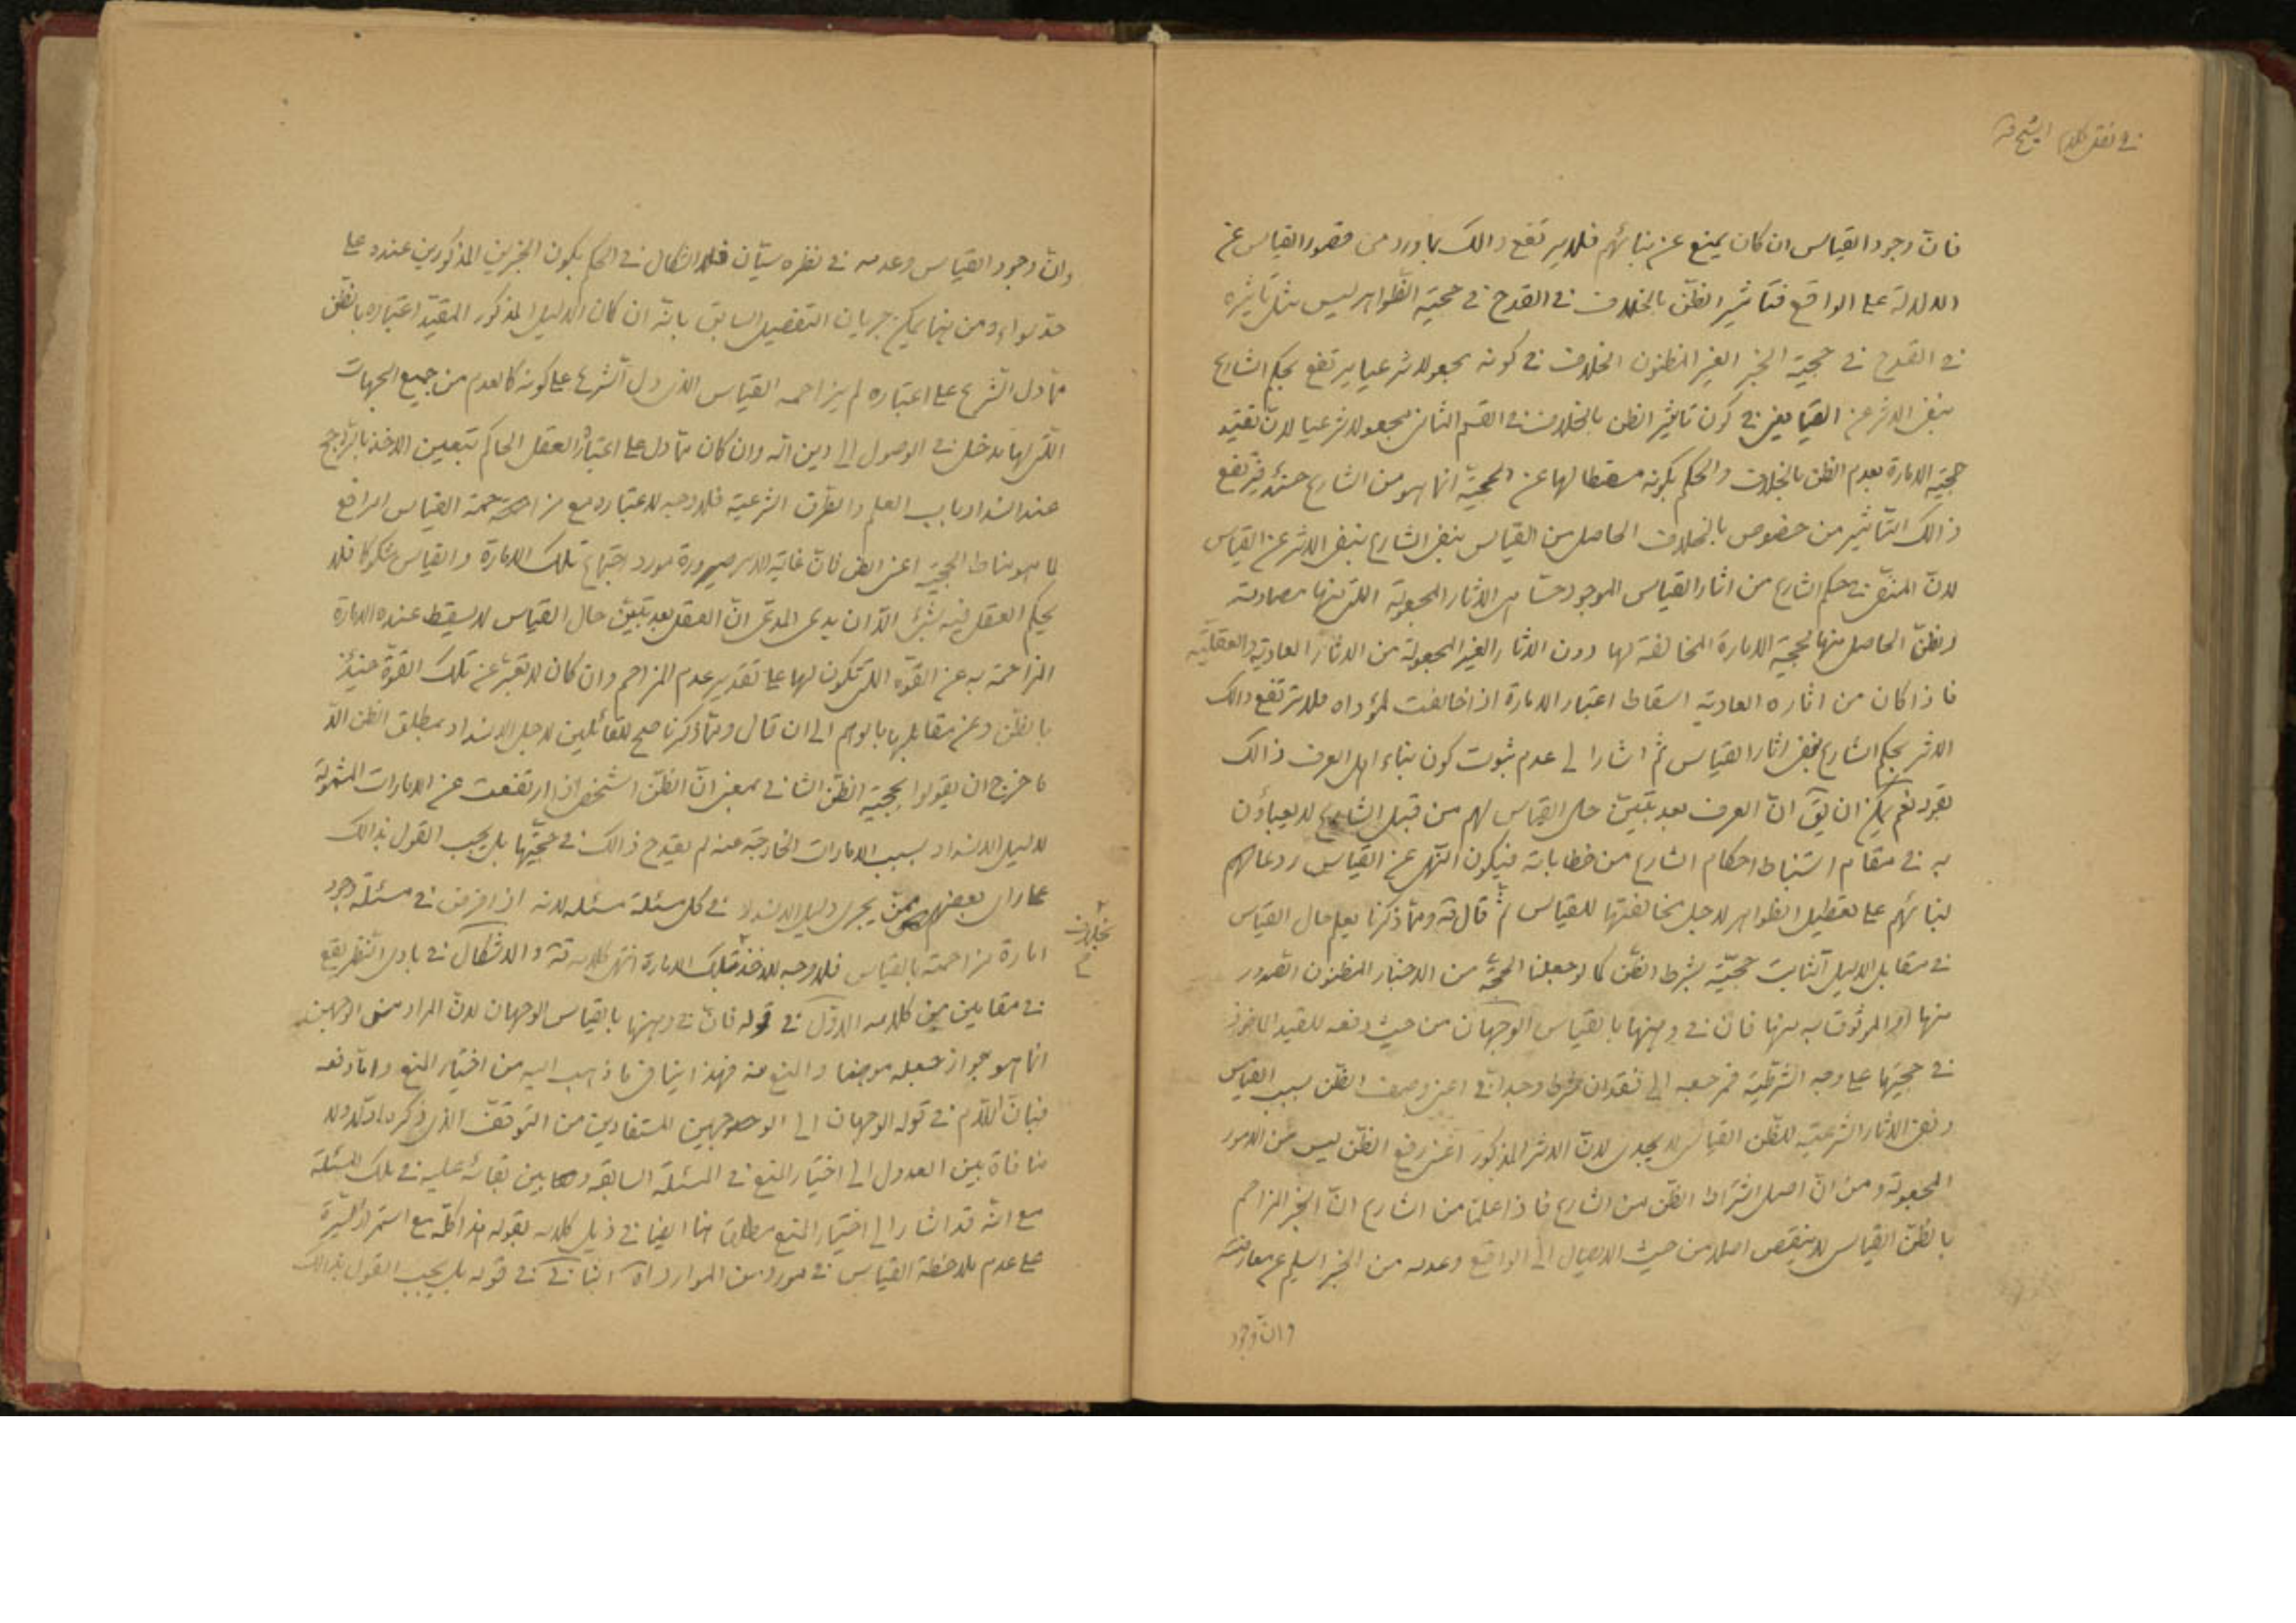 في نقل كلام الشيخ قه
فانّ وجود القياس ان كان يمنع عن بنائهم فلا يرتفع ذالك بما ورد من قصور القياس عن
الدلالة على الواقع فتأثير الظنّ بالخلاف في القدح في حجية الظواهر ليس مثل تأثيره
في القدح في حجية الخبر الغير المظنون الخلاف في كونه مجعولا شرعيا يرتفع بحكم الشارع
بنفي الاثر عن القياس في كون تاثير الظن بالخلاف في القسم الثاني مجعولا شرعيا لانّ تقييد
حجية الامارة بعدم الظن بالخلاف والحكم بكونه مسقطا لها عن الحجيّة انما هو من الشارع حينئذ فيرتفع
ذالك التأثير من خصوص بالخلاف الحاصل من القياس بنفي الشارع بنفي الاثر عن القياس
لانّ المنفي في حكم الشارع من اثار القياس الموجود حسّا هي الاثار المجعولة التي منها مصادمته
والظنّ الحاصل منها لحجية الامارة المخالفة لها دون الاثار الغير المجعولة من الاثار العادية والعقليّة
فاذا كان من اثاره العادية اسقاط اعتبار الامارة اذا خالفت لمؤداه فلا يرتفع ذالك
الاثر بحكم الشارع بنفي اثار القياس ثمّ اشار الى عدم ثبوت كون بناء اهل العرف ذالك
بقوله نعم يمكن ان يق انّ العرف بعد تبيّن حال القياس لهم من قبل الشارع لا يعباؤن
به في مقام استنباط احكام الشارع من خطاباته فيكون النّهي عن القياس ردعا لهم
لبنائهم على تعطيل الظواهر لاجل مخالفتها للقياس ثم قال قه وممّا ذكرنا يعلم حال القياس
في مقابل الدليل الثابت حجيّته بشرط الظنّ كما لو جعلنا الحجّة من الاخبار المظنون الصدور
منها او الموثوق به منها فان في وهنها بالقياس الوجهان من حيث رفعه للقيد الماخوذ
في حجيتها على وجه الشرطيّة فمرجعه الى فقدان شرط وجداني اعني وصف الظنّ بسبب القياس
ونفي الاثار الشرعية للظّن القياسي لا يجدي لانّ الاثر المذكور اعني رفع الظنّ ليس من الامور
المجعولة ومن انّ اصل اشتراط الظنّ من الشارع فاذا علمنا من الشارع انّ الخبر المزاحم
بالظّن القياسي لا ينقص اصلا من حيث الايصال الى الواقع وعدمه من الخبر السليم عن معارضته
وانّ وجود
وانّ وجود القياس وعدمه في نظره سيّان فلا اشكال في الحكم بكون الخبرين المذكورين عنده على
حدّ سواء ومن هنا يمكن جريان التفصيل السابق بانّه ان كان الدليل المذكور المقيّد اعتباره بالظنّ
ممّا دل الشرع على اعتباره لم يزاحمه القياس الذي دل الشرع على كونه كالعدم من جميع الجهات
التي لها مدخل في الوصول الى دين الله وان كان ممّا دل على اعتباره العقل الحاكم بتعيين الاخذ بالراجح
عند انسداد باب العلم والطرق الشرعية فلا وجه لاعتباره مع مزاحمة القياس الرافع
لما هو مناط الحجيّة اعني الظن فانّ غاية الامر صيرورة مورد اجتماع تلك الامارة والقياس مشكوكا فلا
يحكم العقل فيه بشئ الّا ان يدعي المدعي انّ العقل بعد تبيّن حال القياس لا يسقط عنده الامارة
المزاحمة به عن القوّة التي تكون لها على تقدير عدم المزاحم وان كان لا يعبّر عن تلك القوّة حينئذ
بالظّن وعن مقابلها بالوهم الى ان قال وممّا ذكرنا صح للقائلين لاجل الانسداد بمطلق الظن الّا
ما خرج ان يقولوا بحجية الظنّ الشاني بمعنى انّ الظنّ الشخصي اذا ارتفعت عن الامارات المشمولة
لدليل الانسداد بسبب الامارات الخارجة عنه لم يقدح ذالك في حجيّتها بل يجب القول بذالك
على راي بعضهم ممّن يجري دليل الانسداد في كل مسئلة مسئلة لانه اذا فرض في مسئلة وجود
امارة مزاحمة بالقياس فلا وجه للاخذ بخلاف تلك الامارة انتهى كلامه قه والاشكال في بادي النظر يقع
في مقامين من كلامه الاوّل في قوله فانّ في وهنها بالقياس الوجهان لانّ المراد من الوجهين
انما هو جواز جعله موهنا والمنع منه فهذا ينافي ما ذهب اليه من اختيار المنع وامّا دفعه
فبانّ اللّام في قوله الوجهان الى الوجهين المستفادين من التوقف الذي ذكره اولا ولا
منافاة بين العدول الى اختيار المنع في المسئلة السابقة وبين بقائه عليه في تلك المسئلة
مع انّه قد اشار الى اختيار المنع مطلقا هنا ايضا في ذيل كلامه بقوله هذا كلّه مع استمرار السّيرة
على عدم ملاحظة القياس في مورد من الموارد اه الثاني في قوله بل يجب القول بذالك